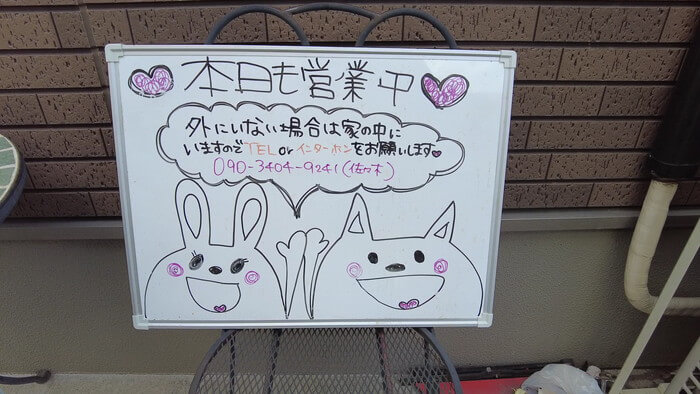 本日も営業中
外にいない場合は家の中に
いますのでTEL or インターホンをお願いします
090-3404-9241(佐々木)